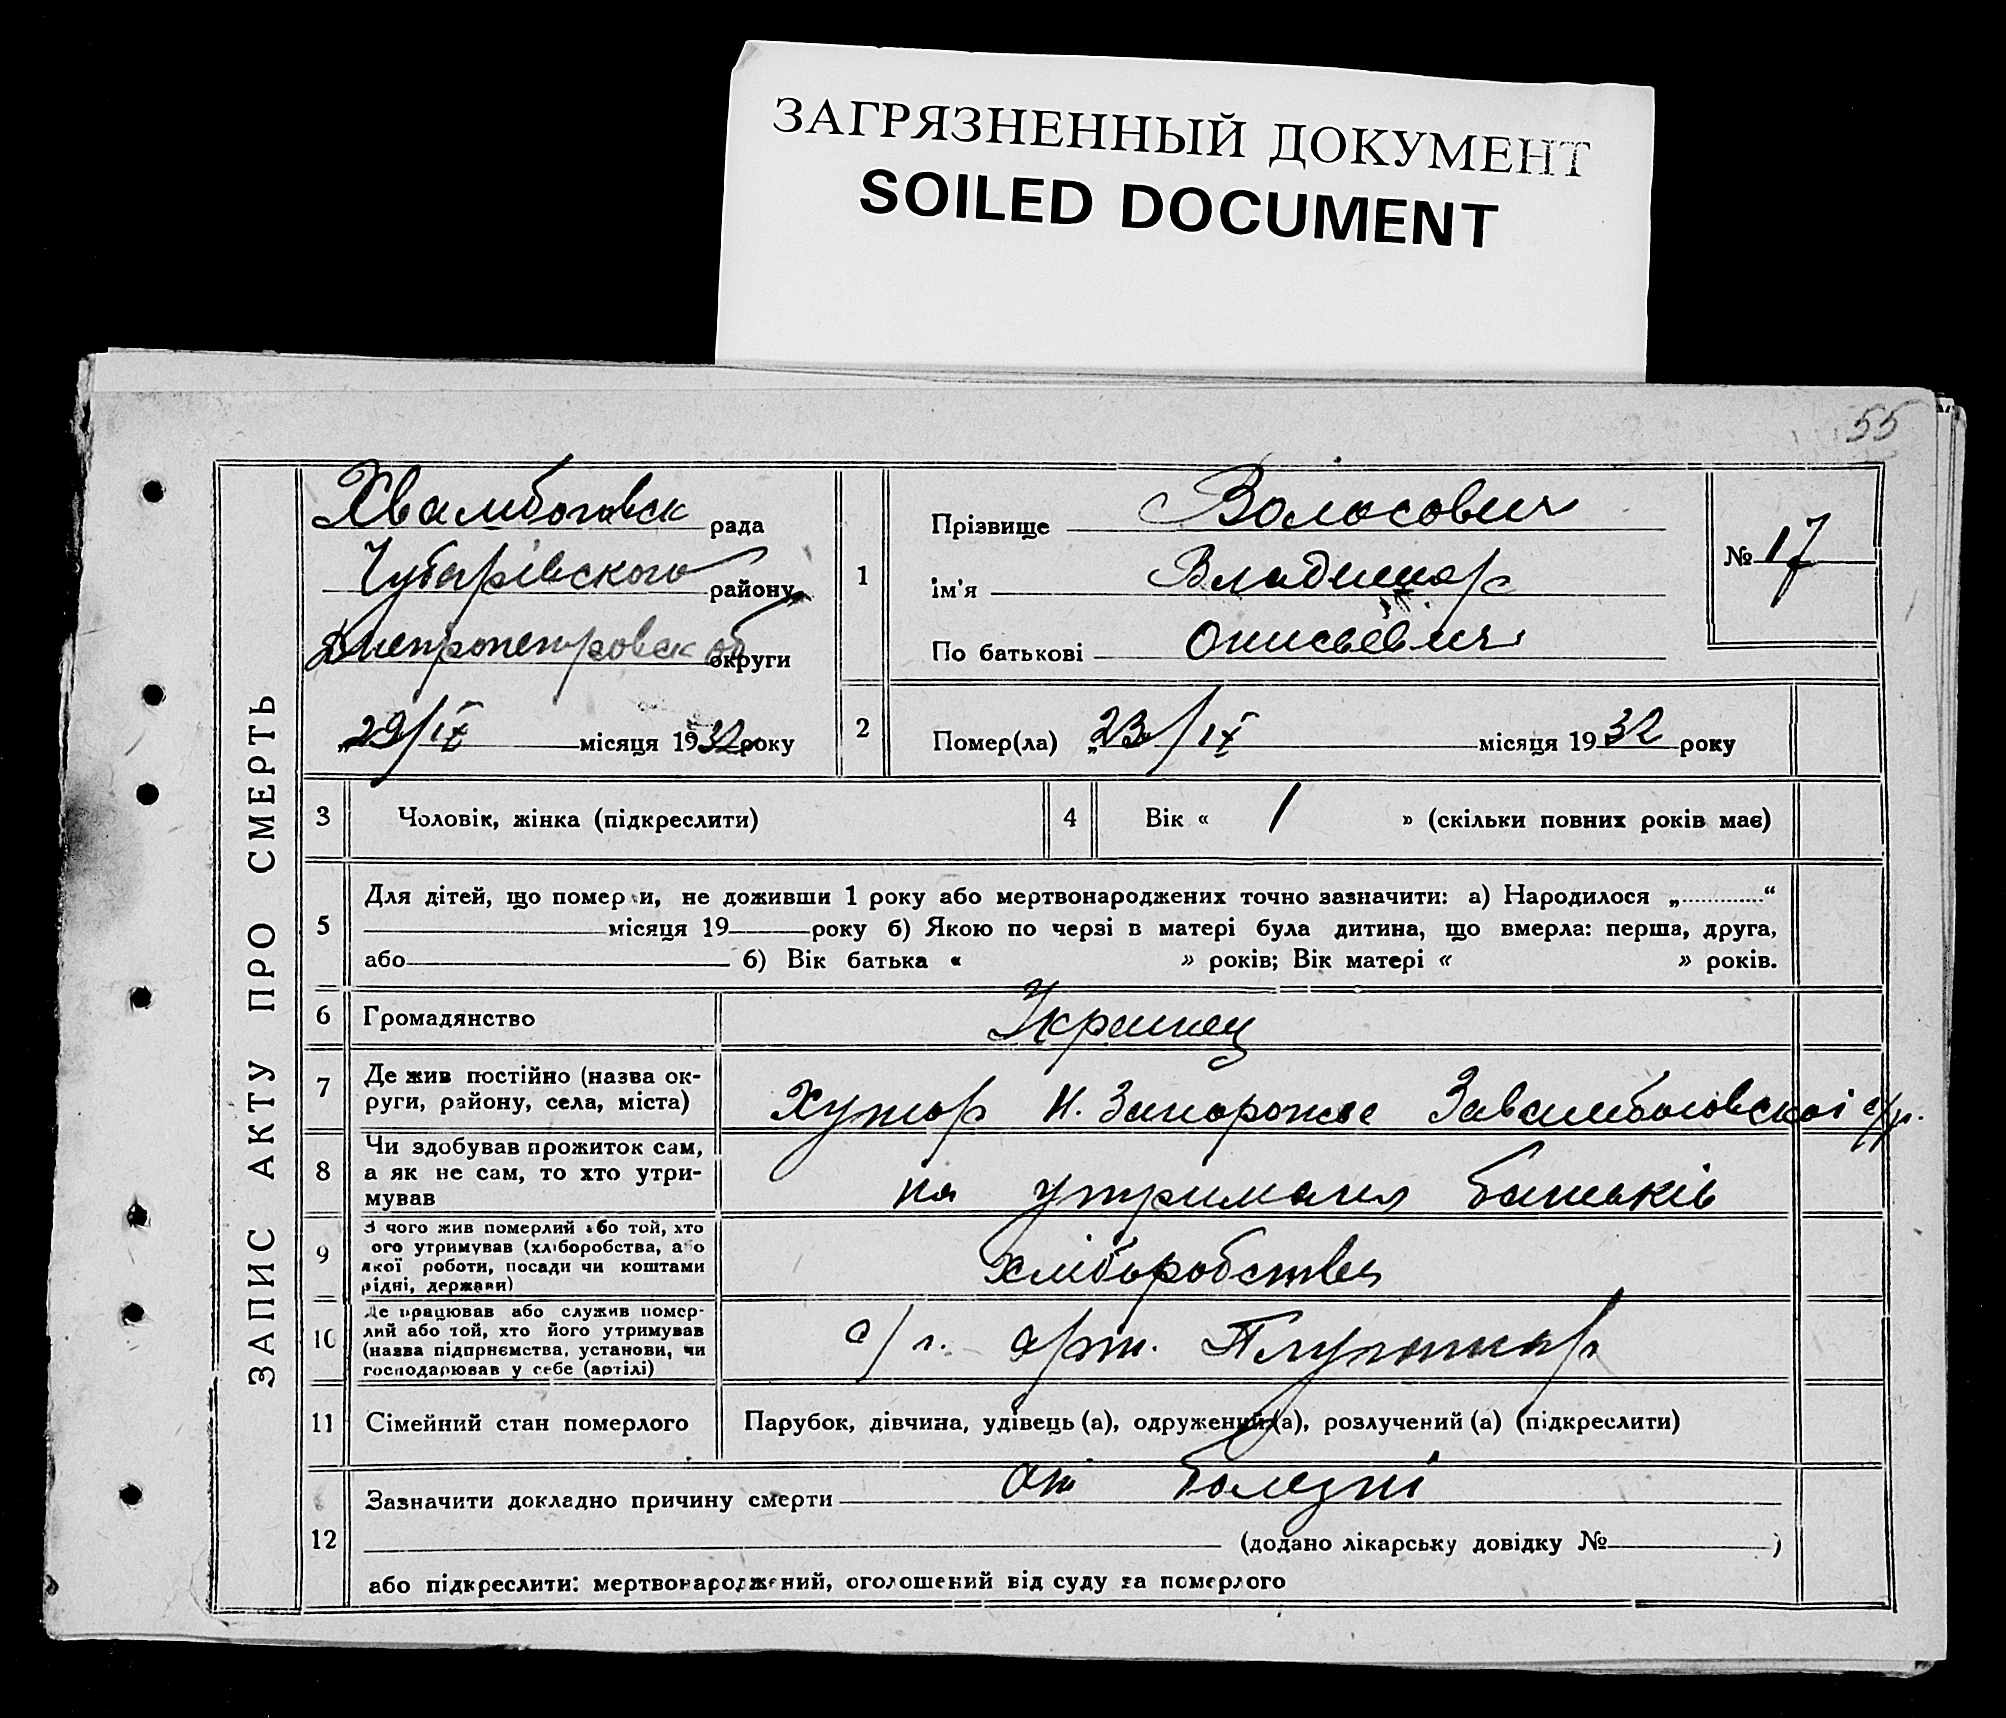 ЗАГРЯЗНЕННЫЙ ДОКУМЕНТ
SOILED DOCUMENT
55
ЗАПИС АКТУ ПРО СМЕРТЬ
рада
Чубарівського району
Днепропетровск об округи
„29/IX місяця 1932 року
1
Прізвище Волосович
ім'я Владимир
По батькові
№ 17
2 Помер(ла) „23/IX місяця 1932 року
3 Чоловік, жінка (підкреслити)
4 Вік « 1 » (скільки повних років має)
5 Для дітей, що померли, не доживши 1 року або мертвонароджених точно зазначити: а) Народилося „ “
місяця 19 року б) Якою по черзі в матері була дитина, що вмерла: перша, друга,
або б) Вік батька « » років; Вік матері « » років.
6 Громадянство Украинец
7 Де жив постійно (назва ок-
руги, району, села, міста) Хутор Н. Запорожье с/р.
8 Чи здобував прожиток сам,
а як не сам, то хто утри-
мував на утриманя батьків
9 З чого жив померлий або той, хто
ого утримував (хліборобства, або
якої роботи, посади чи коштами
рідні, держави) хліборобства
10 Де працював або служив помер-
лий або той, хто його утримував
(назва підпрнємства, установи, чи
господарював у себе (артілі) с/г. арт.
11 Сімейний стан померлого Парубок, дівчина, удівець (а), одружений (а), розлучений (а) (підкреслити)
12 Зазначити докладно причину смерти от болезні
(додано лікарську довідку № )
або підкреслити: мертвонароджений, оголошений від суду за померлого